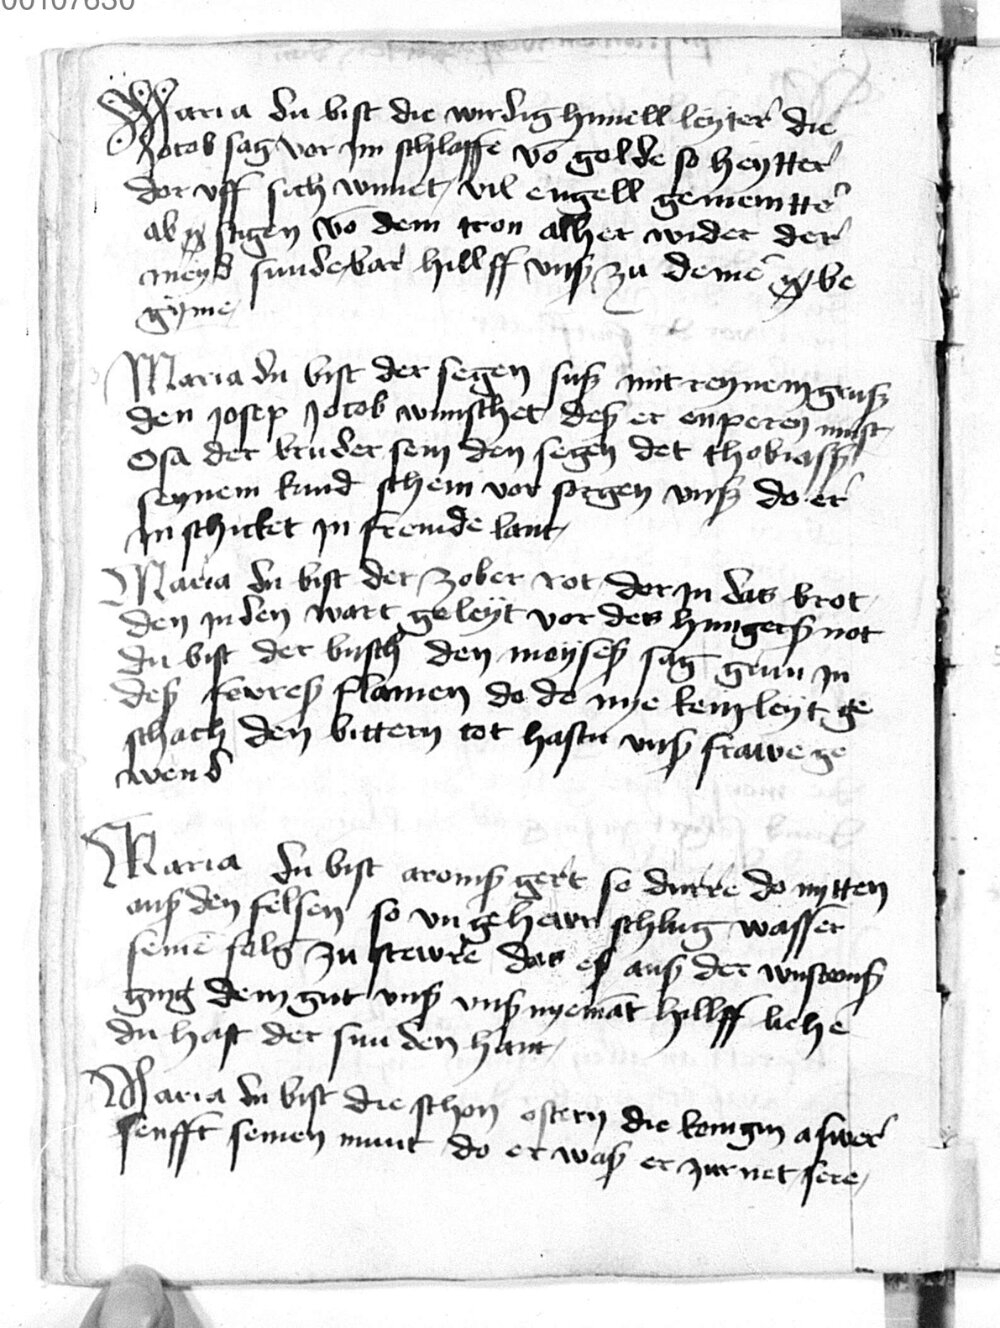 00107630
Maria du bist die wirdig himell leyter die
Jocob sag vor im schlaffe vō golde so heytter
dor uff sich wnnet vil engell gemeintte
ab stigen vō dem tron alher wider der
meyd sunderbar hillff unß zu deinē be
gyme
Maria du bist der segen suß mit reynem gruß
den Josep Jocob wunschet deß er enperen must
Osa der bruder sein den segen det thobiaß
seynem kind schein vor sorgen unß do er
in schicket in fremde lant
Maria du bist der zober rot dor in das brot
den juden wart geleyt vor des hungerß not
du bist der busch den moyseß sag grun in
deß fewreß flamen do de nye kein leyt ge
schach den bittern tot hastu unß frawe ge
wend
Maria du bist aronß gert so durre do mytten
auß den felsen so ungehewr schlug wasser
seinē folg zu stewre das eß auß der
ging dem gut unß unß nyemāt hillff liehē
du hast der sunden hant
Maria du bist die schon ostern die konigin aswer
senfft seinen mut do er waß er zurnet sere